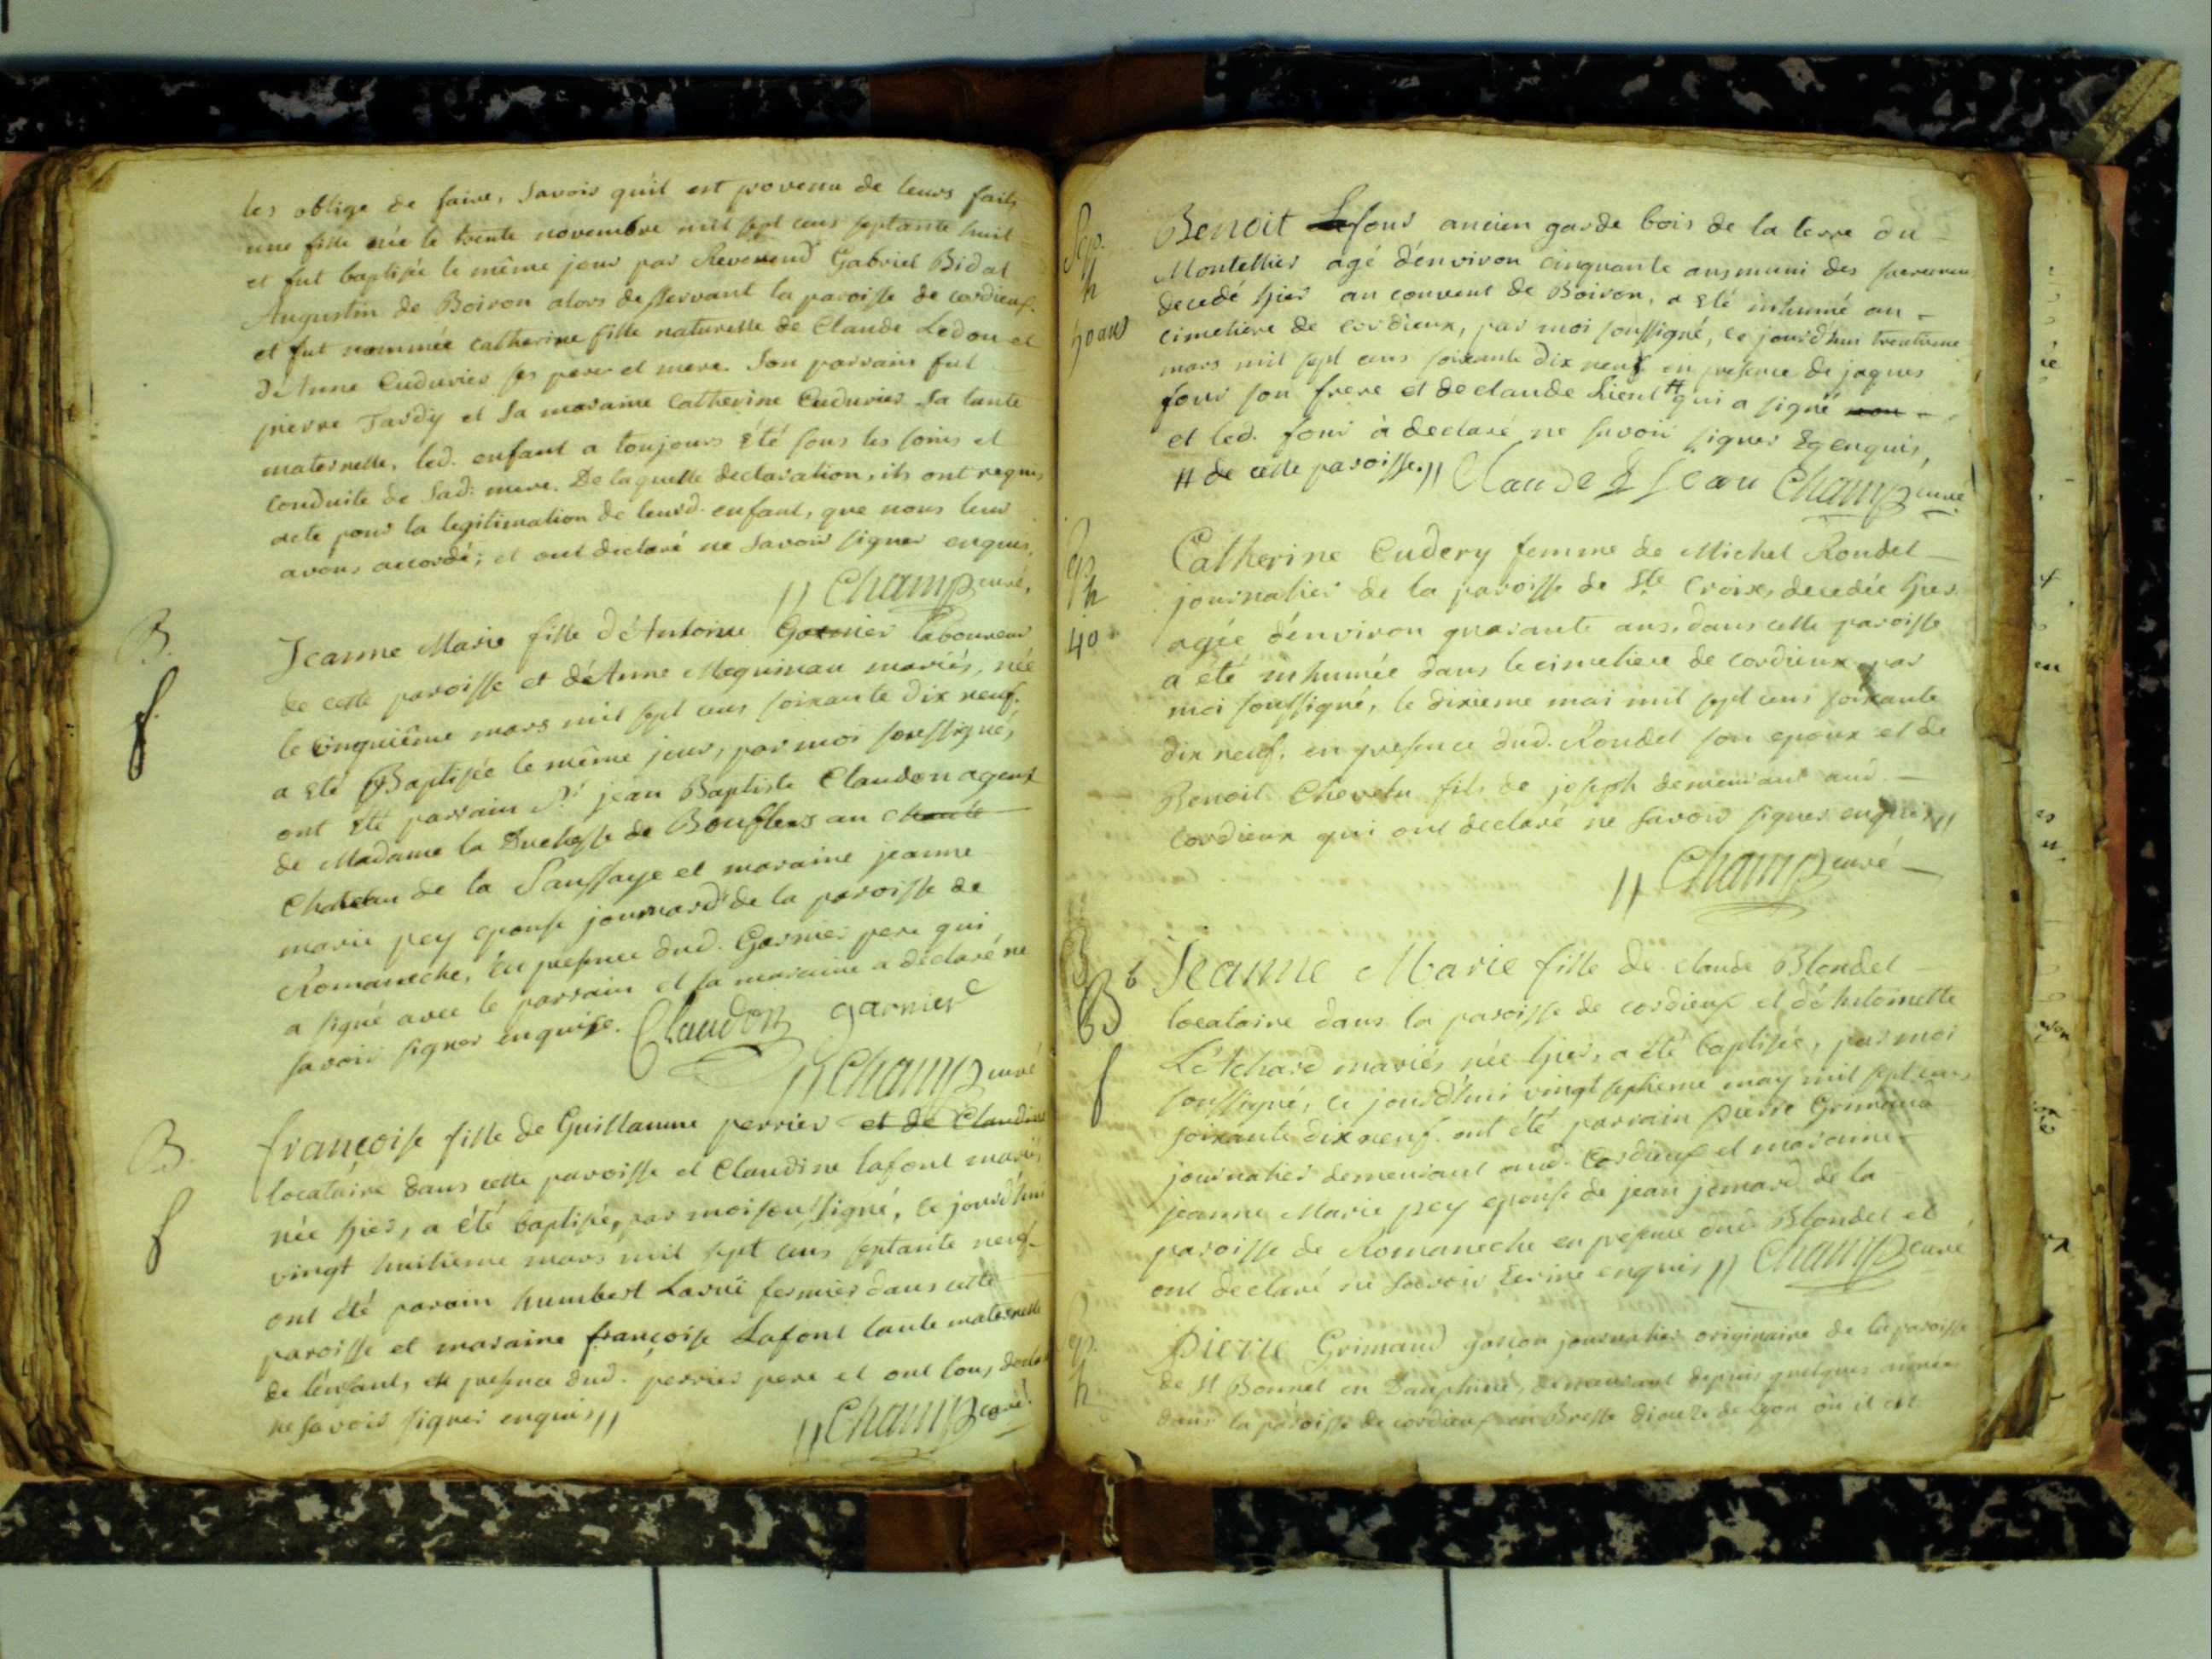 les oblige de faire, Savoir qu'il est provenu de leurs faits
une fille née le trente novembre mil sept cens septante huit
et fut baptisée le même jour par Reverend Gabriel Bidal
Augustin de Boiron alors desservant la paroisse de cordieux.
et fut nommée catherine fille naturelle de Claude Ledon et
d'Anne Cuduries ses pere et mere. Son parrain fut
pierre Tardy et sa maraine Catherine Cuduries sa tante
maternelle, led. enfant a toujours été sous les soins et
conduite de sad. mere. De laquelle declaration, ils ont requis
acte pour la legitimation de leurd. enfant, que nous leur
avons accordé; et ont declaré ne savoir signer enquis,
// Champ curé,
B.
f.
Jeanne Marie fille d'Antoine Garnier laboureur
de cette paroisse et d'Anne Moguinau mariés, née
le cinquième mars mil sept cens soixante dix neuf.
a été Baptisée le même jour, par moi soussigné,
ont été parrain Sr. jean Baptiste Claudon agent
de Madame la Duchesse de Bouflers au chaute
Chateau de la Saussaye et maraine jeanne
marie pey epouse journard de la paroisse de
Romaneche, en presence dud. Garnier pere qui
a signé avec le parrain et la maraine a déclaré ne
savoir signer enquise. Claudon garnier
// Champ curé
B.
f
françoise fille de Guillaume perrier et de Claudine
locataire dans cette paroisse et Claudine lafont mariés,
née hier, a été baptisée, par moi soussigné, ce jourd'hui
vingt huitieme mars mil sept cens septante neuf.
ont été parain humbert Larüe fermier dans cette
paroisse et maraine françoise Lafont tante maternelle
de l'enfant, en presence dud. perrier pere et ont tous declaré
ne savoir signer enquis //
// Champ curé.
Sep.
h
50 ans
Benoit Lefour ancien garde bois de la terre du
Montellier agé d'environ cinquante ans muni des sacremens
decedé hier au couvent de Boiron, a été inhumé au
cimetiere de cordieux, par moi soussigné, ce jourd'hui trentieme
mars mil sept cens soixante dix neuf en presence de jaques
four son frere et de claude Lieut # qui a signé non
et led. four a declaré ne savoir signer enquis,
# de cette paroisse. // Claude Champ curé
Sp.
h
40
Catherine Cudery femme de Michel Rondet
journalier de la paroisse de Ste Croix, decedée hier
agée d'environ quarante ans, dans cette paroisse
a été inhumée dans le cimetiere de cordieux par
moi soussigné, le dixieme mai mil sept cens soixante
dix neuf. en presence dud. Rondet son epoux et de
Benoit Chevelu fils de joseph demeurant aud.
cordieux qui ont declaré ne savoir signer enquis //
// Champ curé
B
f
Jeanne Marie fille de claude Blondel
locataire dans la paroisse de cordieux et d'Antoinette
L'Achard mariés née hier, a été baptisée, par moi
soussigné, ce jourd'hui vingt septieme may mil sept cens
soixante dix neuf. ont été parrain pierre Grimaud
journalier demeurant aud. Cordieux et maraine
jeanne Marie pey epouse de jean jomard de la
paroisse de Romaneche en presence dud. Blondel et
ont declaré ne savoir ecrire enquis // Champ curé
Sp.
h
pierre Grimaud garcon journalier originaire de la paroisse
de St Bonnet en Dauphiné, demeurant depuis quelques années
dans la paroisse de cordieux en Bresse dioceze de Lyon où il est